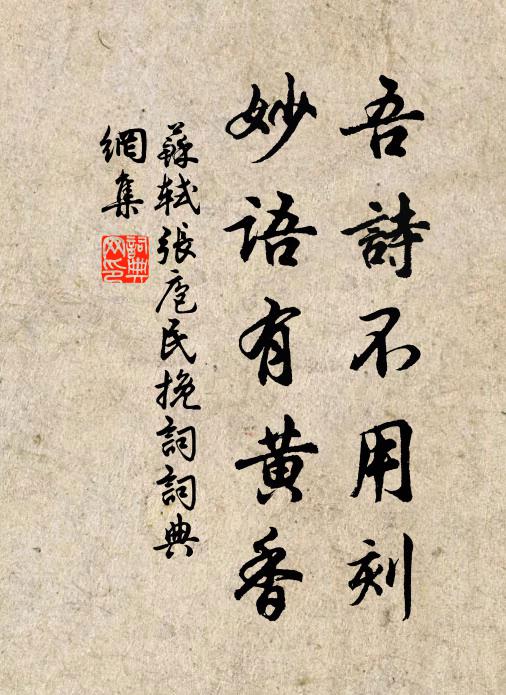 吾詩不用刻
妙語有黄香
蘇軾張庖民挽詞詞典
網集
詞典網印